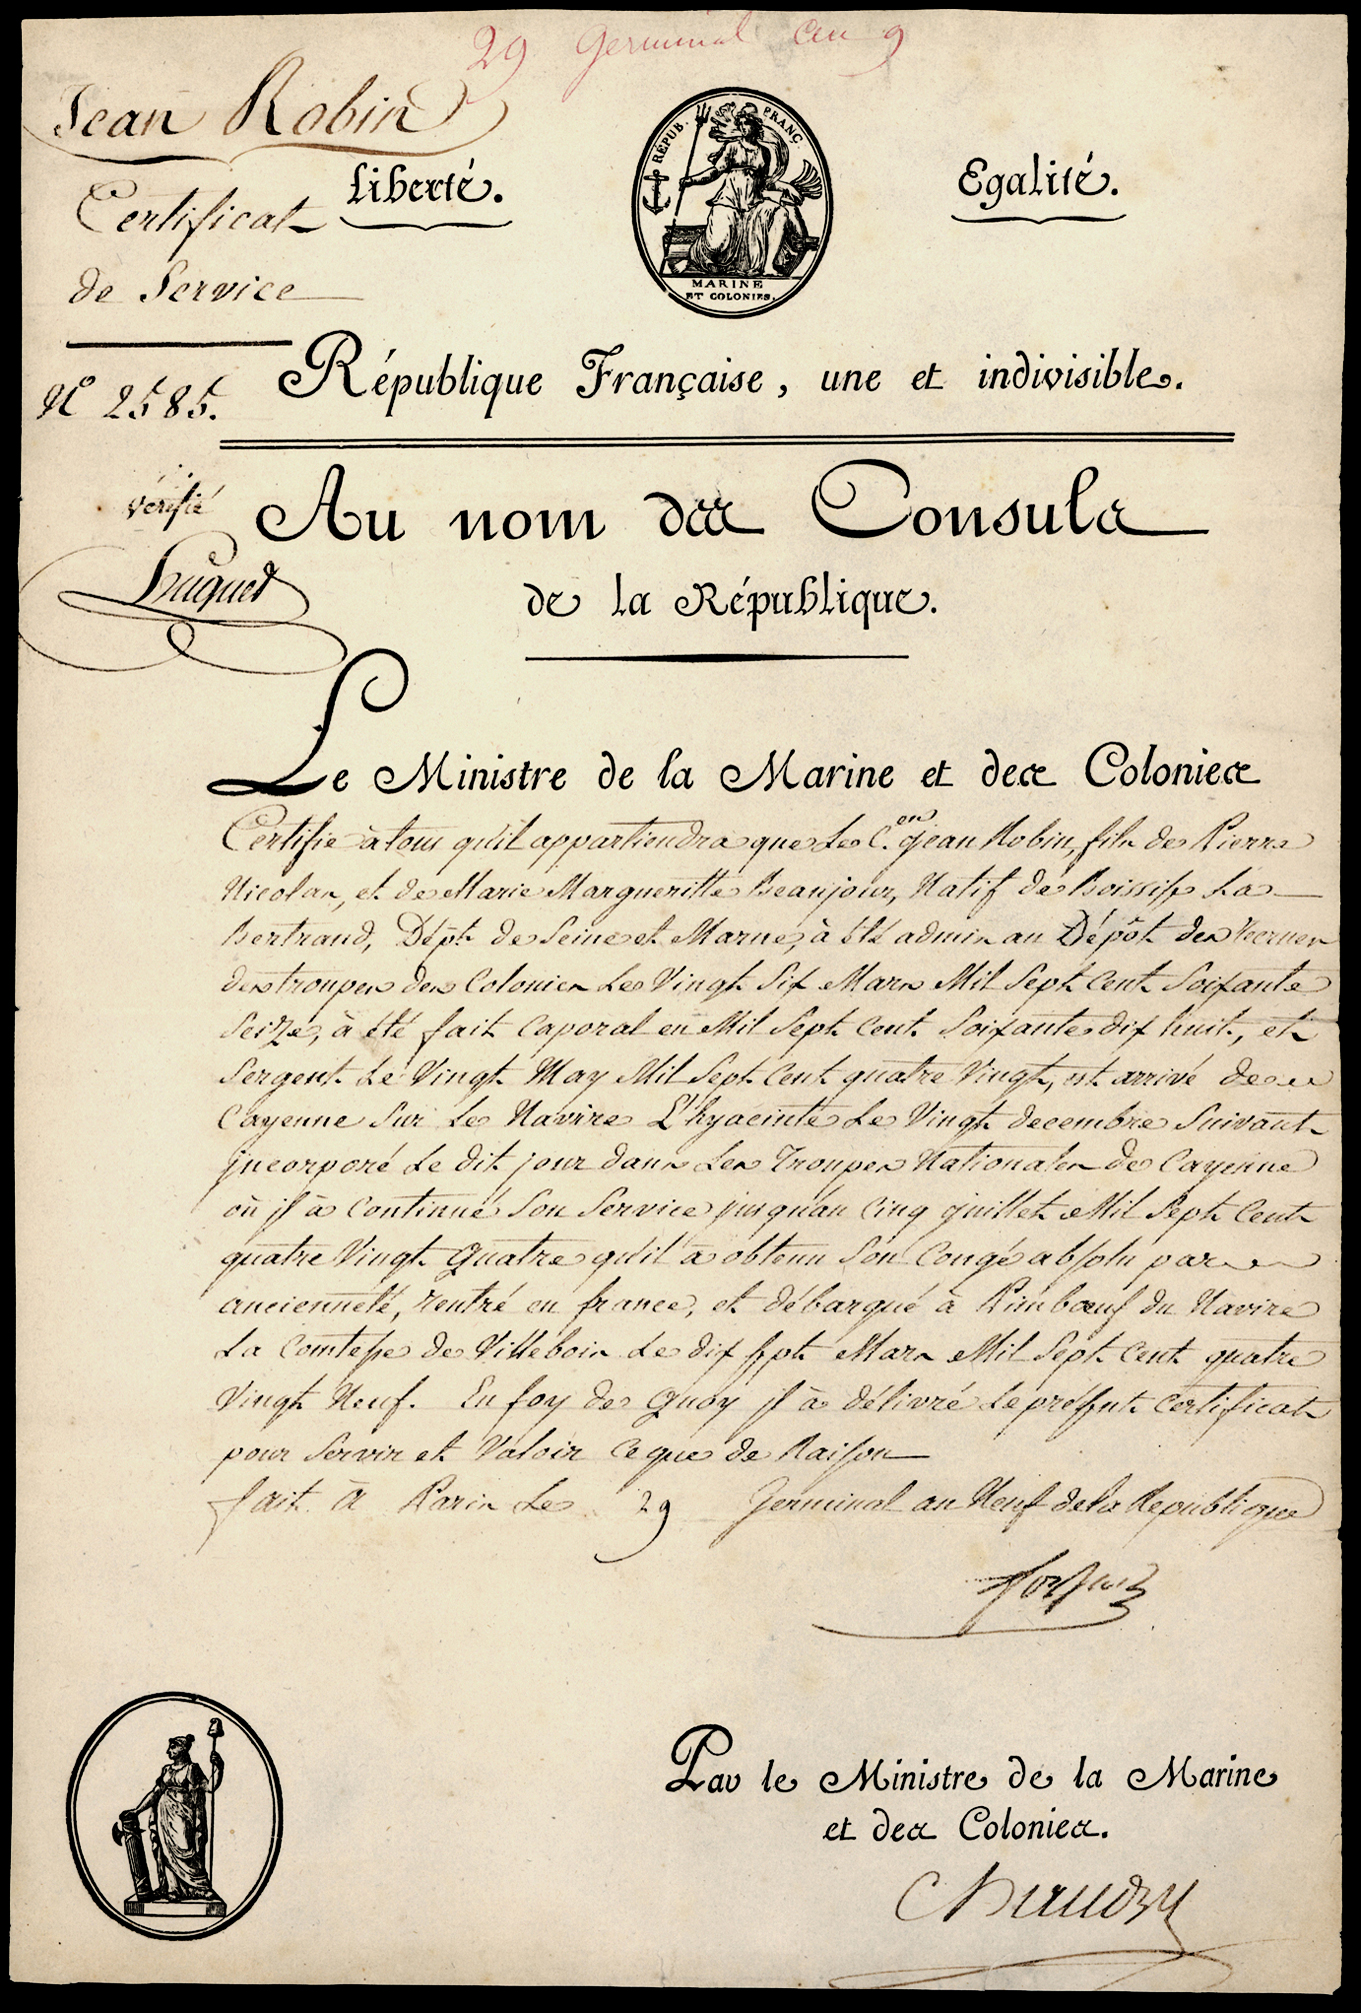 29 Germinal an 9
Jean Robin
Certificat
de Service
N° 2585.
vérifié
Huguet
Liberté.
RÉPUB. FRANÇ.
MARINE
ET COLONIES.
Egalité.
République Française, une et indivisible.
Au nom des Consuls
de la République.
Le Ministre de la Marine et des Colonies
Certifie à tous qu'il appartiendra que Le C.en Jean Robin, fils de Pierre
Nicolas, et de Marie Margueritte Beaujour, Natif de Boissise La
Bertrand, Dépt. de Seine et Marne, à été admis au Dépôt des Recrues
des troupes des Colonies Le Vingt Six Mars Mil Sept Cent Soixante
Seize, à été fait Caporal en Mil Sept Cent Soixante dix huit, et
Sergent Le Vingt May Mil Sept Cent quatre Vingt, est arrivé de
Cayenne Sur Le Navire L'hyacinte Le Vingt decembre Suivant
jncorporé Le dit jour dans Les Troupes Nationales de Cayenne
où jl à Continué Son Service jusqu'au Cinq juillet Mil Sept Cent
quatre Vingt Quatre qu'il à obtenu Son Congé absolu par
ancienneté, rentré en france, et débarqué à Paimboeuf du Navire
La Comtesse de Villebois Le dix sept Mars Mil Sept Cent quatre
Vingt Neuf. En foy de Quoy jl à délivré Le présent Certificat
pour Servir et Valoir Ce que de Raison
fait à Paris Le 29 Germinal an Neuf de La Republique
Forfait
Par le Ministre de la Marine
et des Colonies.